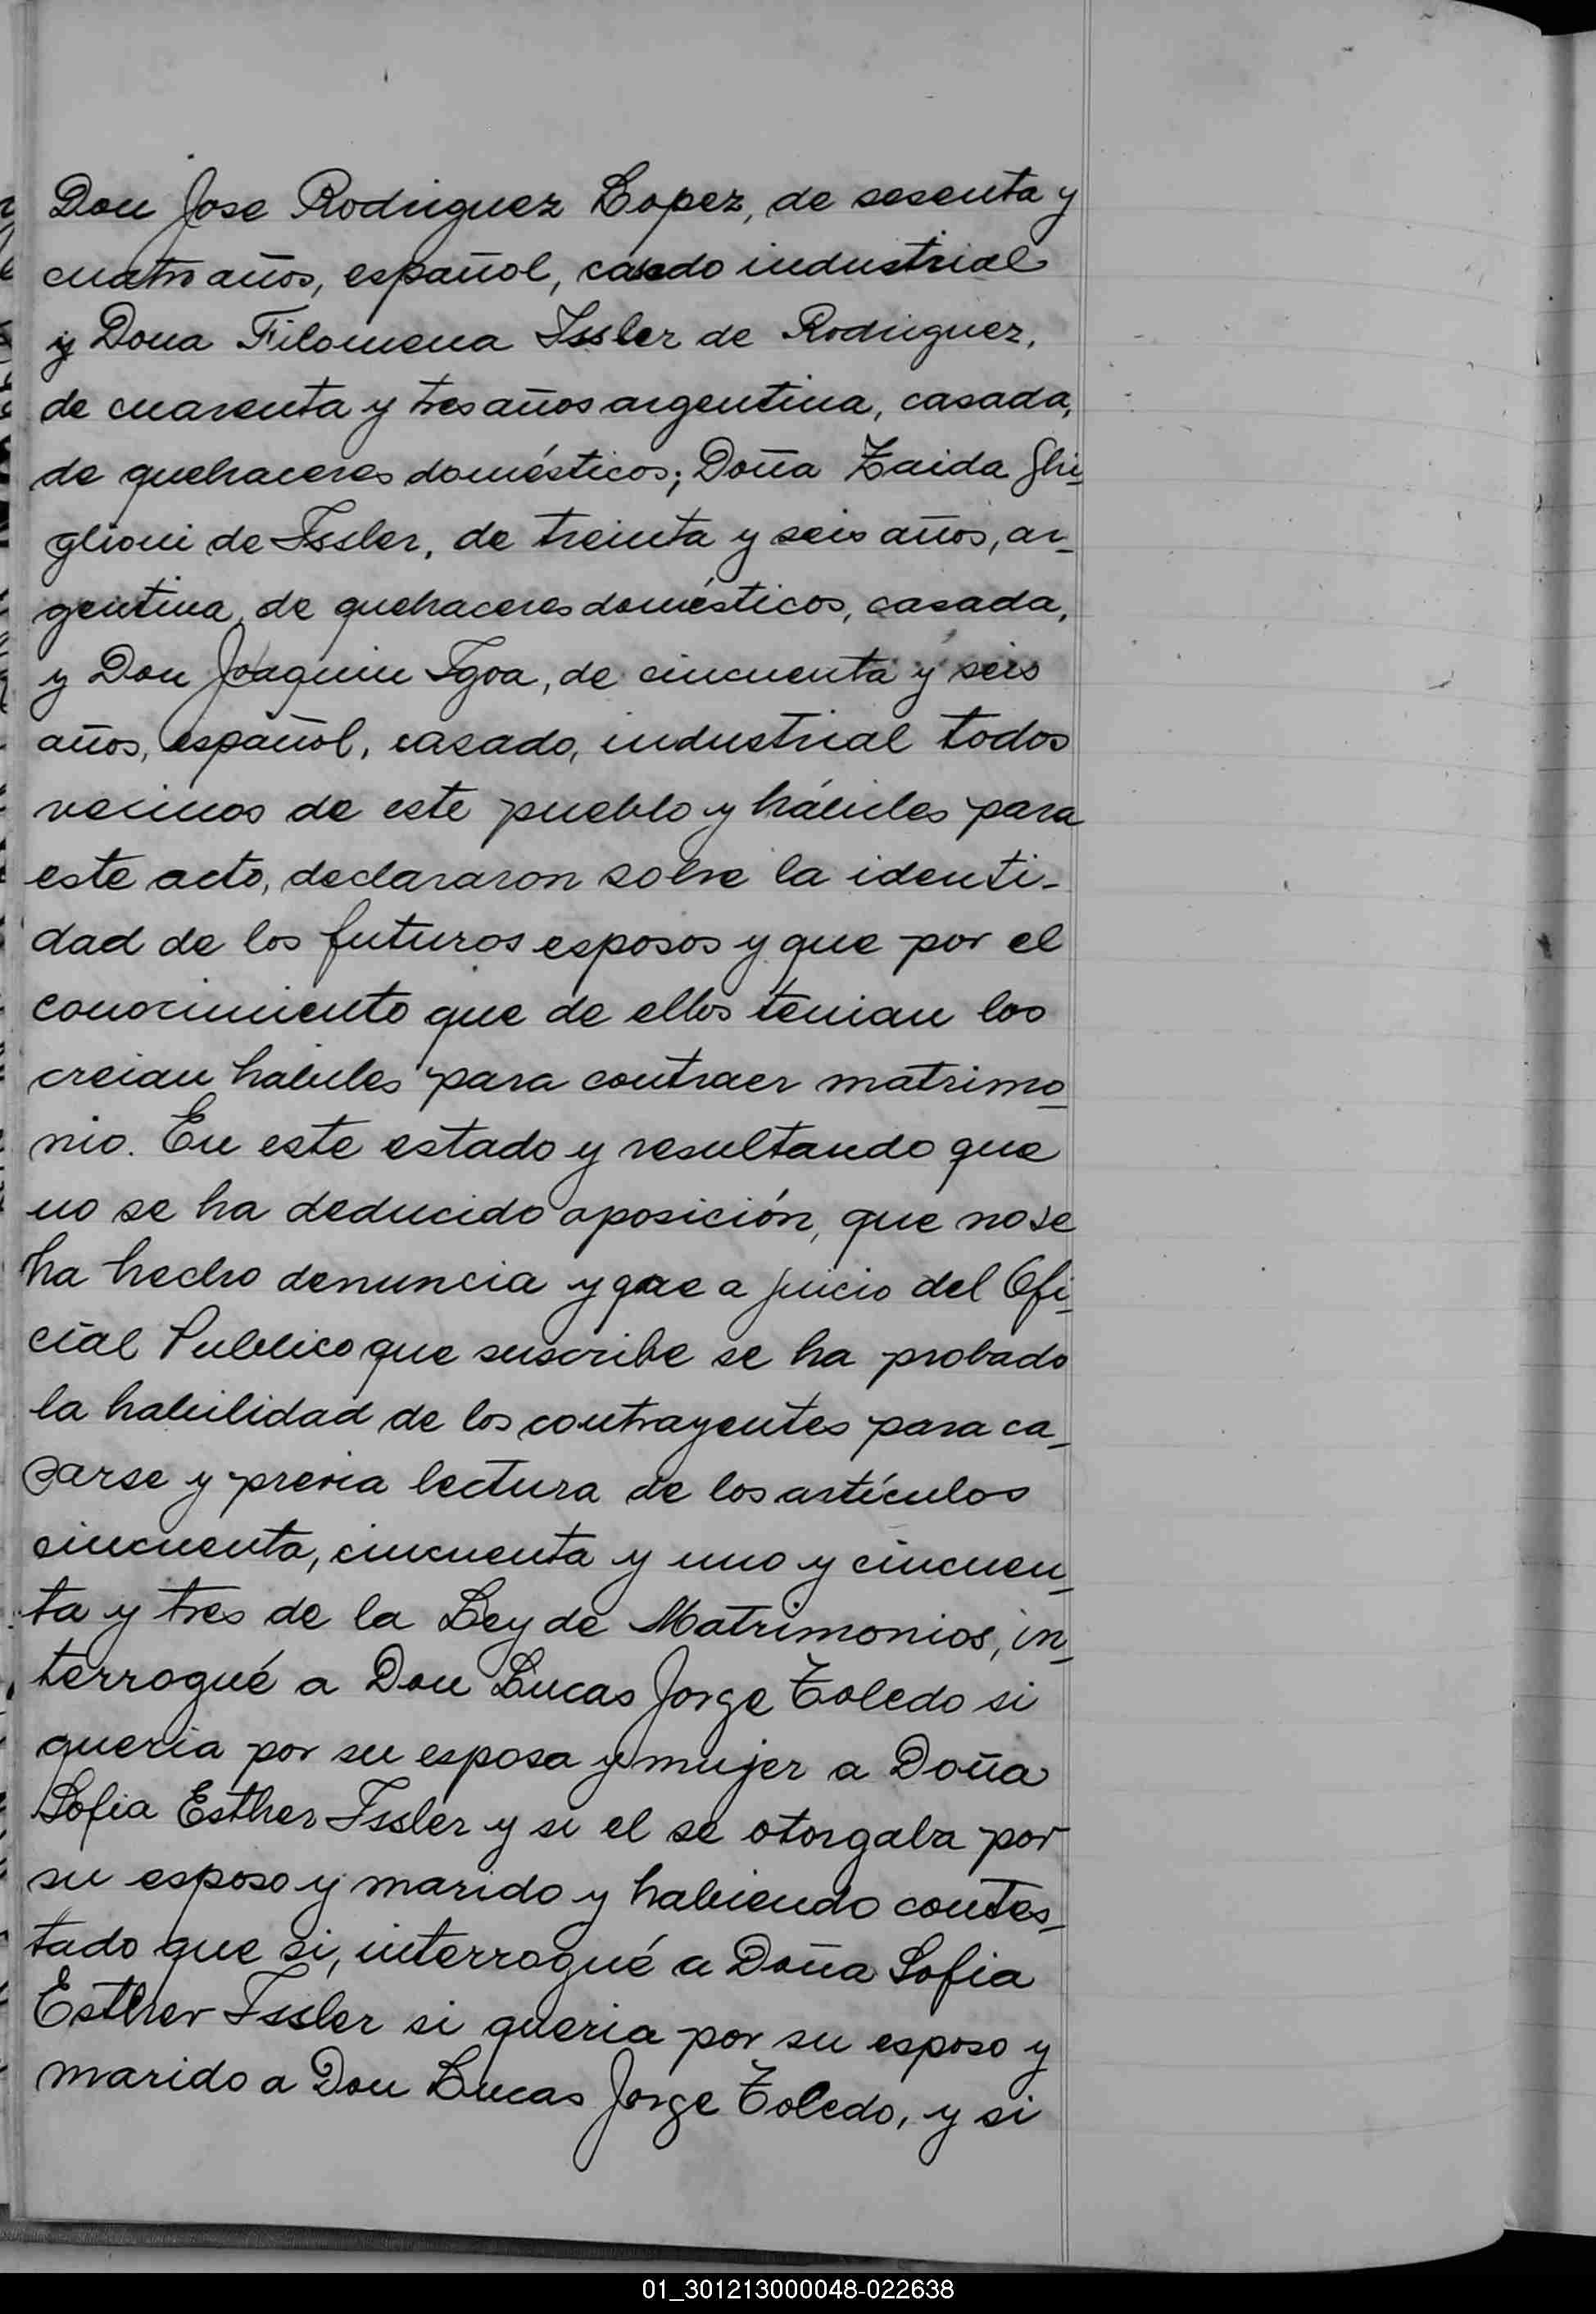 Don Jose Rodriguez Lopez, de sesenta y
cuatro años, español, casado industrial
y Dona Filomena Issler de Rodriguez,
de cuarenta y tres años argentina, casada,
de quehaceres domésticos; Doña Zaida Ghi-
glioni de Issler, de treinta y seis años, ar-
gentina, de quehaceres domésticos, casada,
y Don Joaquin Igoa, de cincuenta y seis
años, español, casado, industrial todos
vecinos de este pueblo y hábiles para
este acto, declararon sobre la identi-
dad de los futuros esposos y que por el
conocimiento que de ellos tenian los
creian habiles para contraer matrimo-
nio. En este estado y resultando que
no se ha deducido oposición, que no se
ha hecho denuncia y que a juicio del Ofi-
cial Publico que suscribe se ha probado
la habilidad de los contrayentes para ca-
sarse y previa lectura de los artículos
cincuenta, cincuenta y uno y cincuen-
ta y tres de la Ley de Matrimonios, in-
terrogué a Don Lucas Jorge Toledo si
queria por su esposa y mujer a Doña
Sofia Esther Issler y si el se otorgaba por
su esposo y marido y habiendo contes-
tado que si, interrogué a Doña Sofia
Esther Issler si queria por su esposo y
marido a Don Lucas Jorge Toledo, y si
01_301213000048-022638